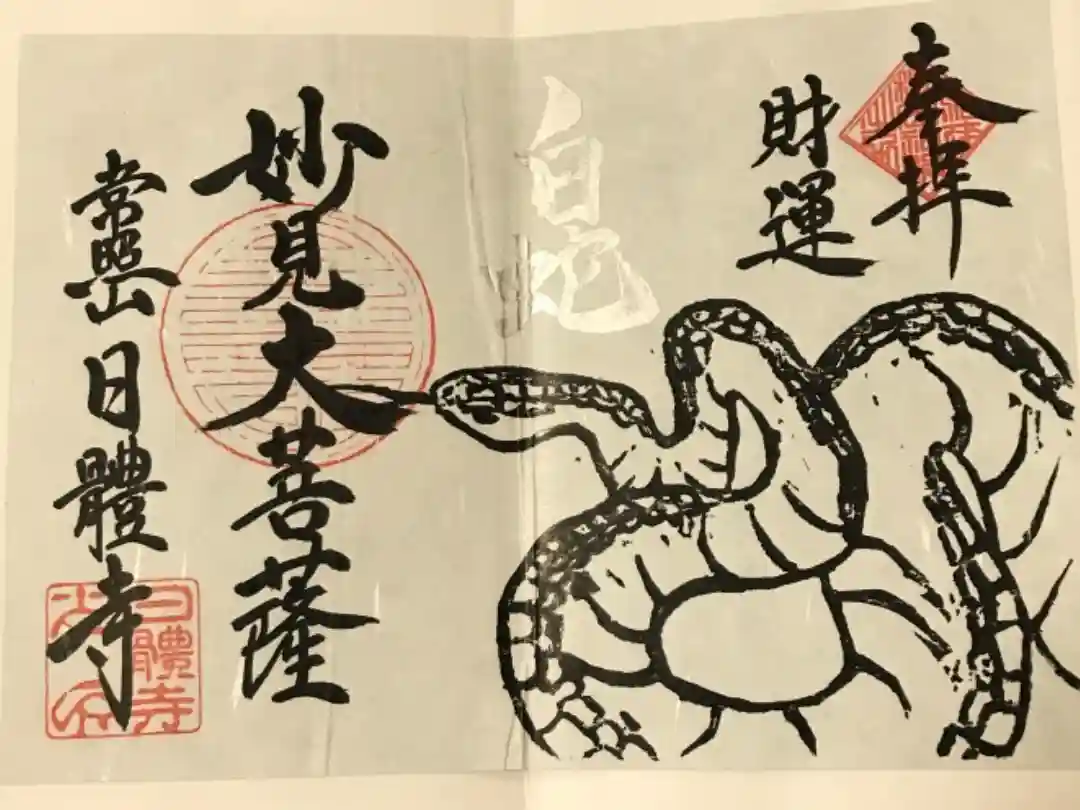 奉拝
財運
白蛇
妙見大菩薩
常照山 日體寺
日體寺